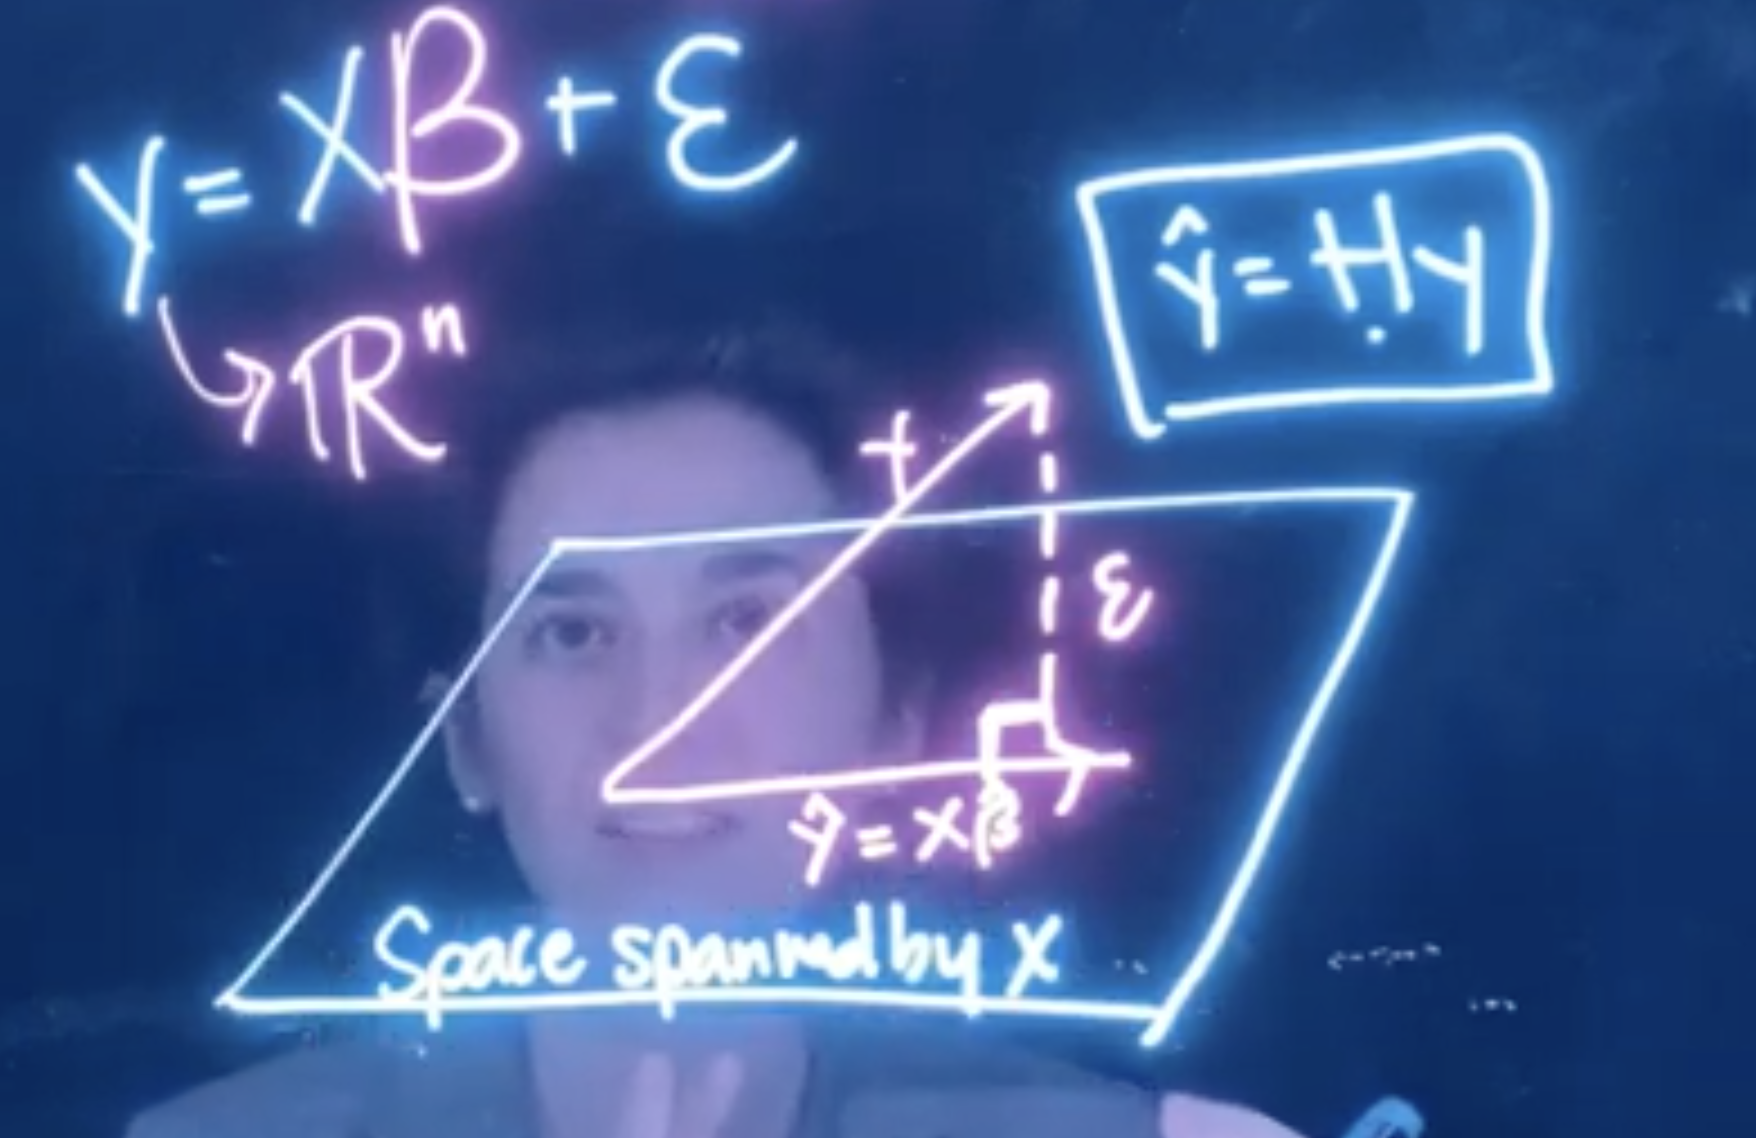 Y = Xβ + ε
ℝⁿ
ŷ = Hy
Y
ε
ŷ = Xβ̂
Space spanned by X